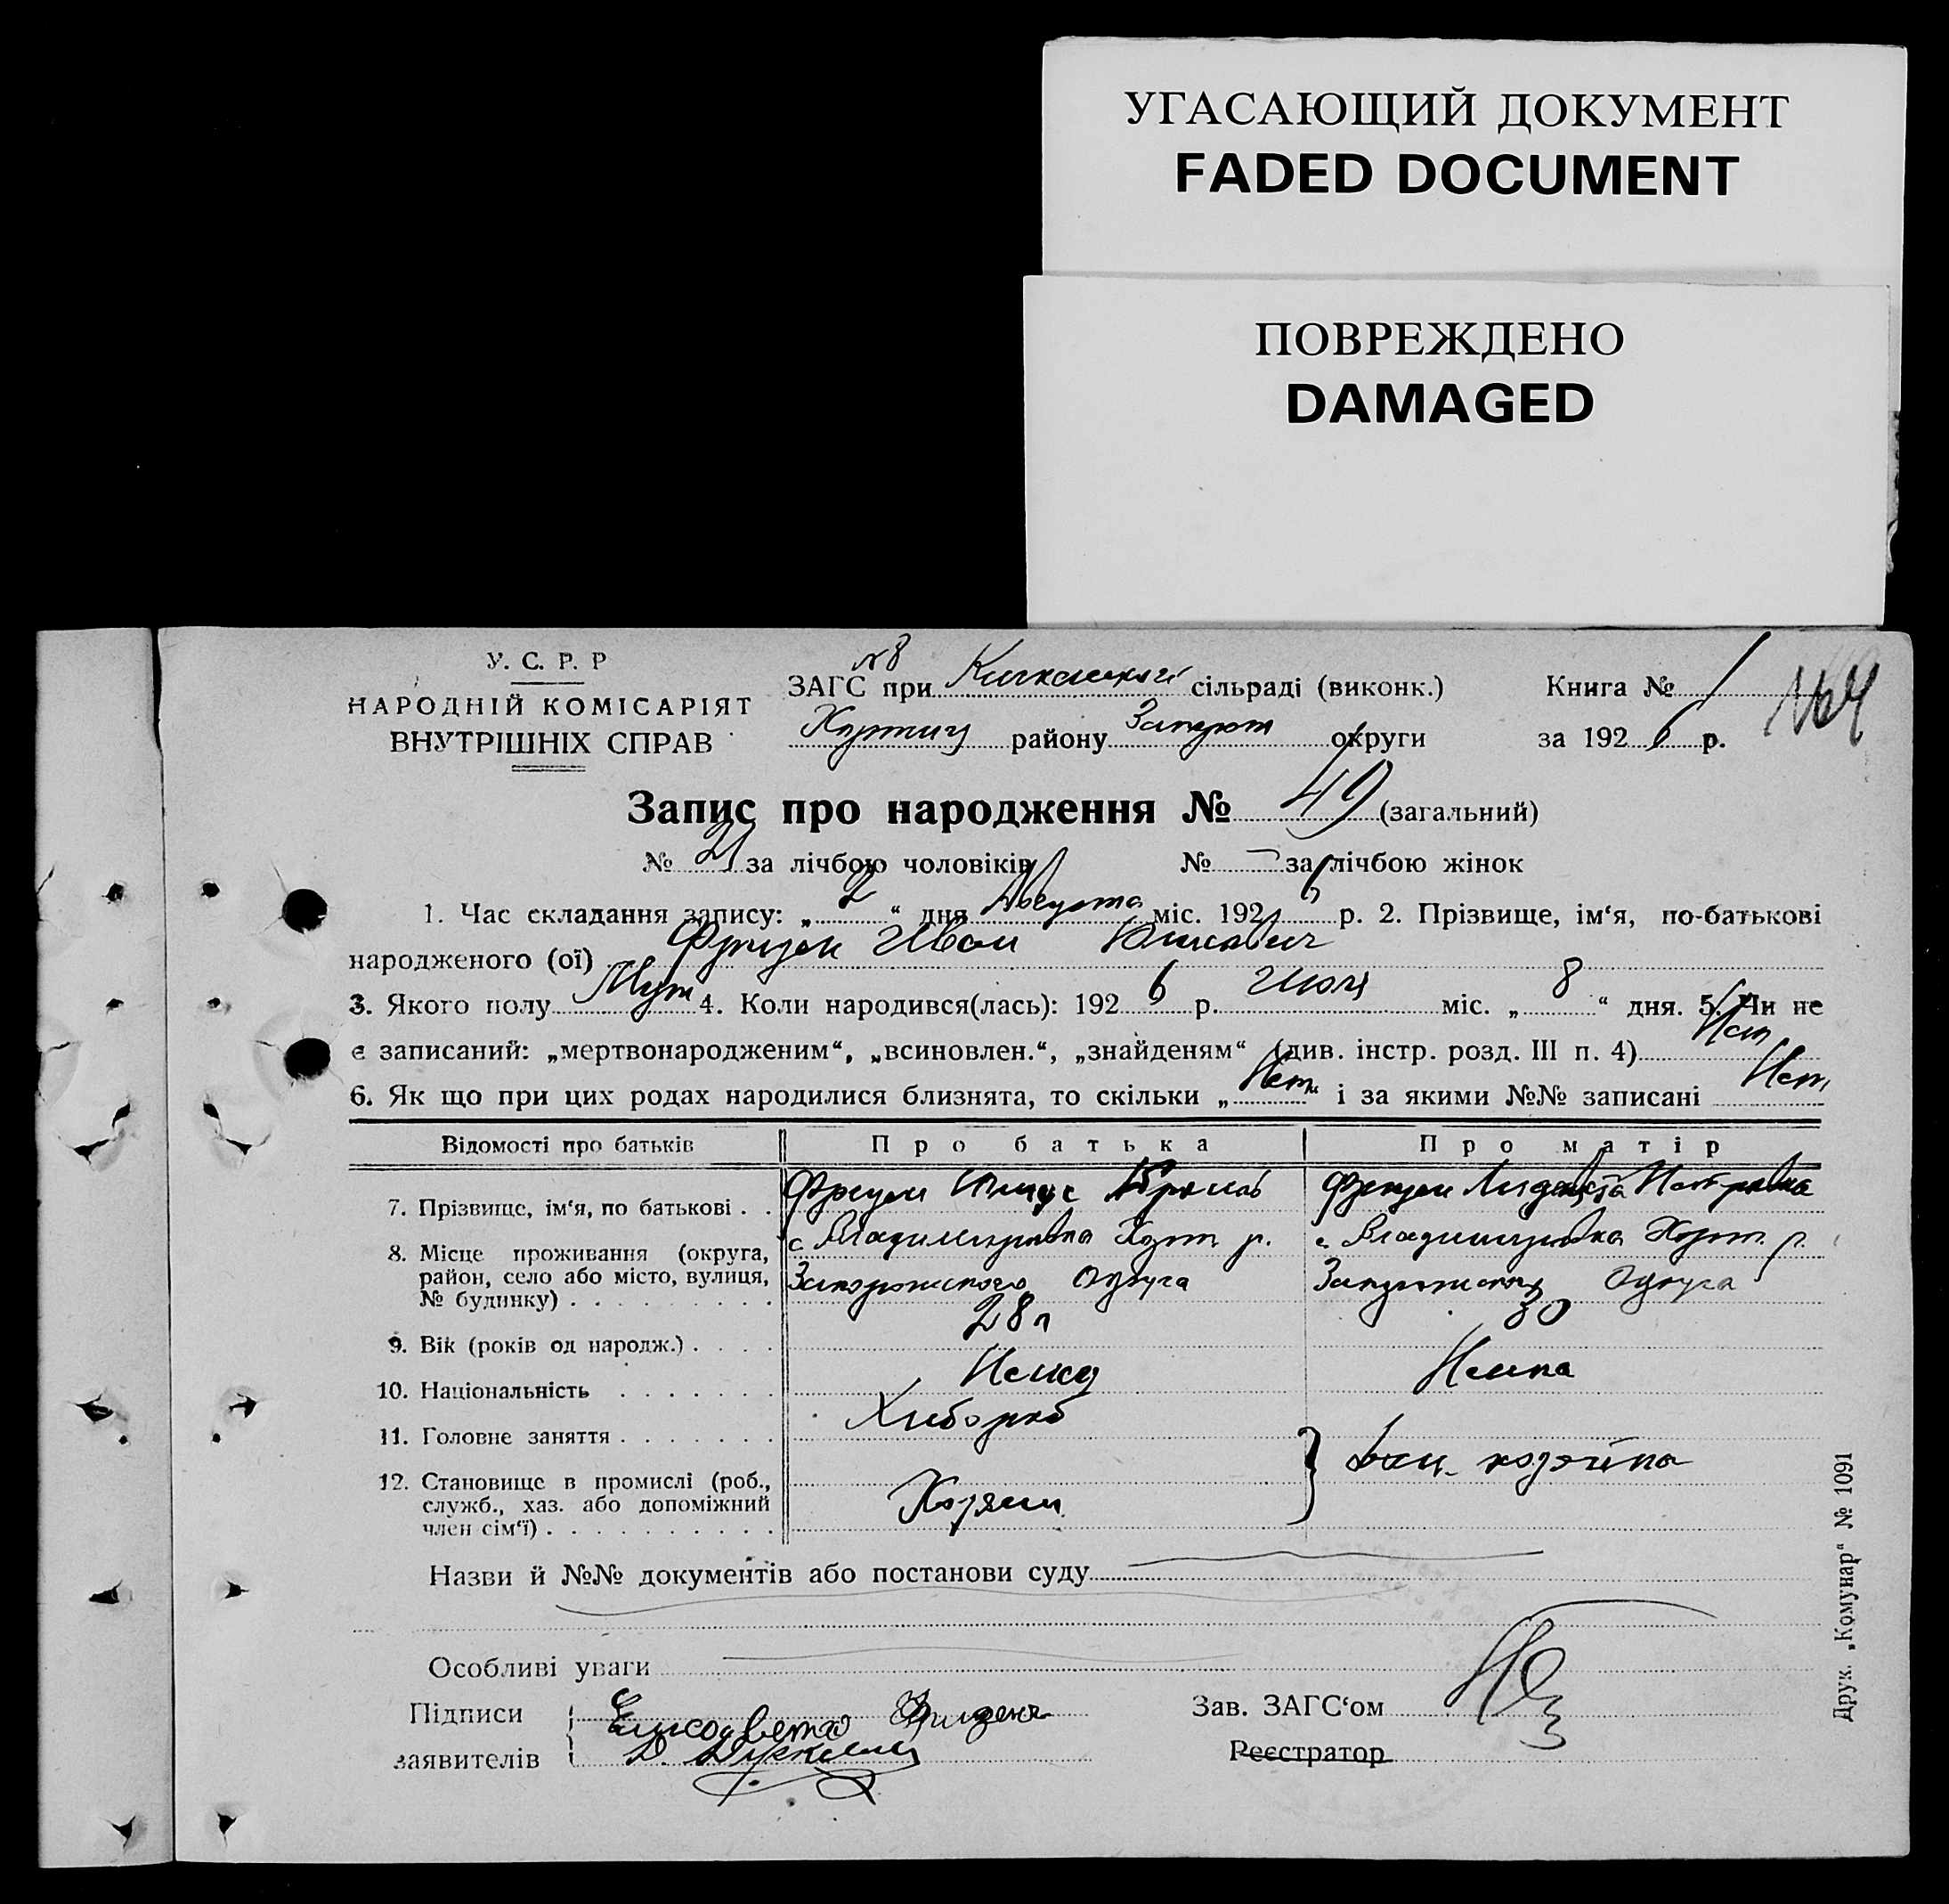 УГАСАЮЩИЙ ДОКУМЕНТ
FADED DOCUMENT
ПОВРЕЖДЕНО
DAMAGED
У. С. Р. Р
НАРОДНІЙ КОМІСАРІЯТ
ВНУТРІШНІХ СПРАВ
№ 8
ЗАГС при сільраді (виконк.)
Хортиц району Запорож округи
Книга № 1
за 1926 р.
Запис про народження № 49 (загальний)
№ 21 за лічбою чоловіків № — за лічбою жінок
1. Час складання запису: „ 2 “ дня Августа міс. 1926 р. 2. Прізвище, ім‘я, по-батькові
народженого (ої) Фризен Иван
3. Якого полу Муж 4. Коли народився(лась): 1926 р. Июля міс. „ 8 “ дня. 5. Чи не
є записаний: „мертвонародженим“, „всиновлен.“, „знайденям“ (див. інстр. розд. III п. 4) Нет
6. Як що при цих родах народилися близнята, то скільки „ Нет “ і за якими №№ записані Нет
Відомості про батьків Про батька Про матір
7. Прізвище, ім‘я, по батькові . . Фризен Фризен Петровна
8. Місце проживання (округа, район, село або місто, вулиця, № будинку) . . . . . . . . .
с Владимировка Хорт р. с Владимировка Хорт. р.
Запорожского Округа Запорожского Округа
9. Вік (років од народж.) . . . . 28 л 30
10. Національність . . . . . . . Немец Немка
11. Головне заняття . . . . . . . Хлебороб
12. Становище в промислі (роб., служб., хаз. або допоміжний член сім‘ї) . . . . . . . . . . Хозяин
Дом. хозяйка
Назви й №№ документів або постанови суду
Особливі уваги
Підписи
заявителів
Елисавета Фризен
Зав. ЗАГС‘ом
Реєстратор
Друк. „Комунар“ № 1091